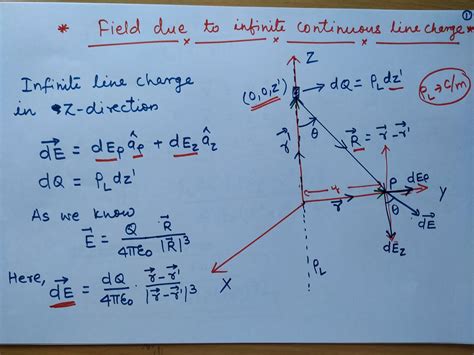 ①
* Field due to infinite continuous line charge *
Infinite line charge
in Z-direction
dE = dEρ âρ + dEz âz
dQ = ρL dz'
As we know
E = Q/4πε₀ R/|R|³
Here,
dE = dQ/4πε₀ r-r'/|r-r'|³
Z
(0,0,z') → dQ = ρL dz'
ρL → C/m
θ
R = r-r'
r'
r
P
dEρ
Y
θ
dE
dEz
X
ρL